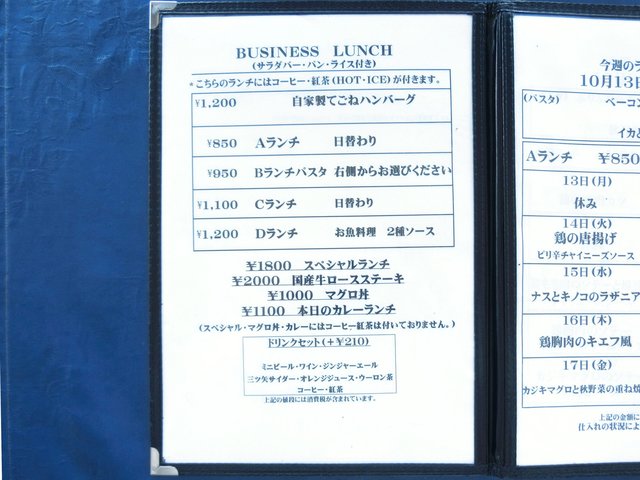 BUSINESS LUNCH
(サラダバー・パン・ライス付き)
*こちらのランチにはコーヒー・紅茶(HOT・ICE)が付きます。
¥1,200 自家製てごねハンバーグ
¥850 Aランチ 日替わり
¥950 Bランチパスタ 右側からお選びください
¥1,100 Cランチ 日替わり
¥1,200 Dランチ お魚料理 2種ソース
¥1800 スペシャルランチ
¥2000 国産牛ロースステーキ
¥1000 マグロ丼
¥1100 本日のカレーランチ
(スペシャル・マグロ丼・カレーにはコーヒー紅茶は付いておりません。)
ドリンクセット(+¥210)
ミニビール・ワイン・ジンジャーエール
三ツ矢サイダー・オレンジジュース・ウーロン茶
コーヒー・紅茶
上記の値段には消費税が含まれています。
今週のラ
10月13日
(パスタ) ベーコン
イカと
Aランチ ¥850
13日(月)
休み
14日(火)
鶏の唐揚げ
ピリ辛チャイニーズソース
15日(水)
ナスとキノコのラザニア
16日(木)
鶏胸肉のキエフ風
17日(金)
カジキマグロと秋野菜の重ね焼
上記の金額に
仕入れの状況によ